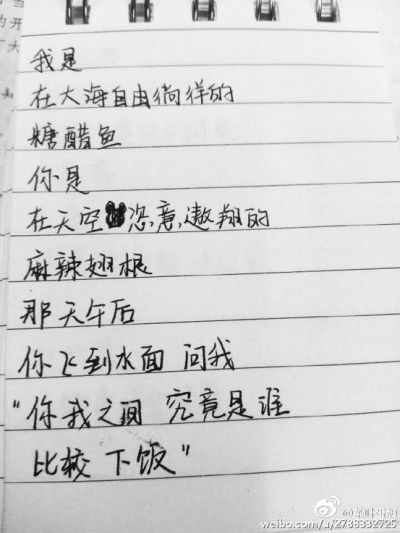 我是
在大海自由徜徉的
糖醋鱼
你是
在天空恣意遨翔的
麻辣翅根
那天午后
你飞到水面 问我
"你我之间 究竟是谁
比较 下饭"
weibo.com/u/2788332725